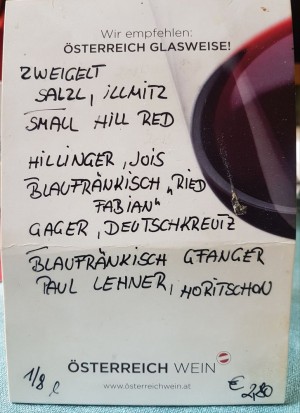 Wir empfehlen:
ÖSTERREICH GLASWEISE!
ZWEIGELT
SALZL, iLLMiTZ
SMALL HiLL RED
HiLLiNGER, JOiS
BLAUFRÄNKiSCH „RiED
FABiAN“
GAGER, DEUTSCHKREUTZ
BLAUFRÄNKiSCH GFANGER
PAUL LEHNER, HORiTSCHON
ÖSTERREICH WEIN
www.österreichwein.at
1/8 l
€ 2,80